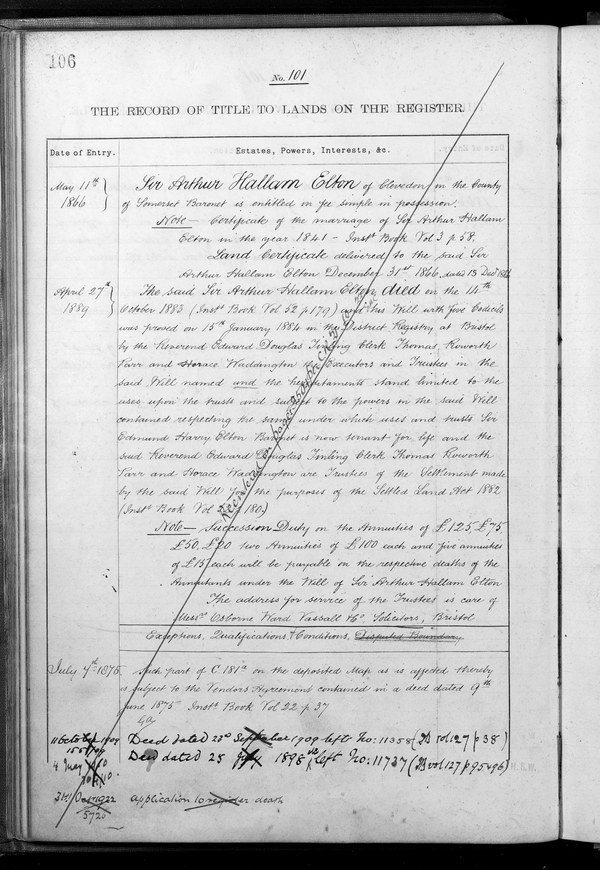 106
No. 101
THE RECORD OF TITLE TO LANDS ON THE REGISTER.
Date of Entry.
Estates, Powers, Interests, &c.
May 11th 1866
Sir Arthur Hallam Elton of Clevedon in the County
of Somerset Baronet is entitled in fee simple in possession.
Note — Certificate of the marriage of Sir Arthur Hallam
Elton in the year 1841 — Instt Book Vol 3 p 58.
Land Certificate delivered to the said Sir
Arthur Hallam Elton December 31st 1866, dated 13 Decr 1866
April 27th 1889
The said Sir Arthur Hallam Elton died on the 14th
October 1883 (Instt Book Vol 52 p 179) and his Will with five Codicils
was proved on 15th January 1884 in the District Registry at Bristol
by the Reverend Edward Douglas Tinling Clerk Thomas Roworth
Parr and Horace Waddington the Executors and Trustees in the
said Will named and the hereditaments stand limited to the
uses upon the trusts and subject to the powers in the said Will
contained respecting the same under which uses and trusts Sir
Edmund Harry Elton Baronet is now tenant for life and the
said Reverend Edward Douglas Tinling Clerk Thomas Roworth
Parr and Horace Waddington are Trustees of the Settlement made
by the said Will for the purposes of the Settled Land Act 1882
(Instt Book Vol 52 p 180.)
Note — Succession Duty on the Annuities of £125, £75
£50, £20 two Annuities of £100 each and five annuities
of £15 each will be payable on the respective deaths of the
Annuitants under the Will of Sir Arthur Hallam Elton
The address for service of the Trustees is care of
Messrs Osborne Ward Vassall & Co Solicitors, Bristol
Exceptions, Qualifications, & Conditions, Disputed Boundary.
July 7th 1875
Such part of C.181a on the deposited Map as is affected thereby
is subject to the Vendors Agreement contained in a deed dated 9th
June 1875 Instt Book Vol 22 p 37
11 October 1909
Deed dated 23rd September 1909 left No: 11358 (B vol 127 p 38)
4 May 1910
Deed dated 25 July 1898 left No: 11737 (B vol 127 p 95 & 96)
31st Oct 1922
application to register death
5720